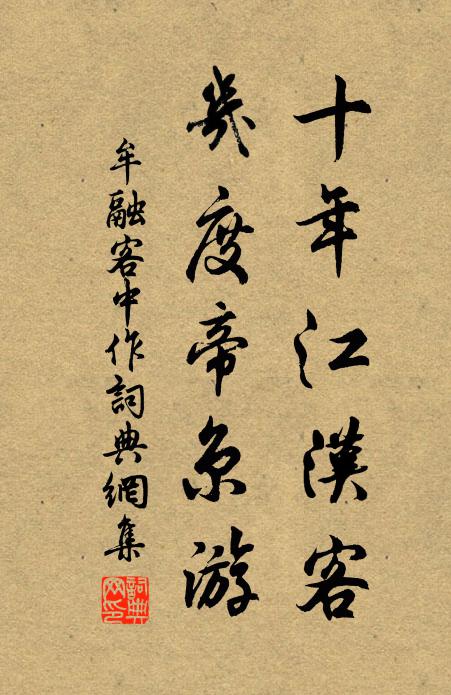 十年江漢客
幾度帝京游
牟融客中作詞典網集
詞典網印